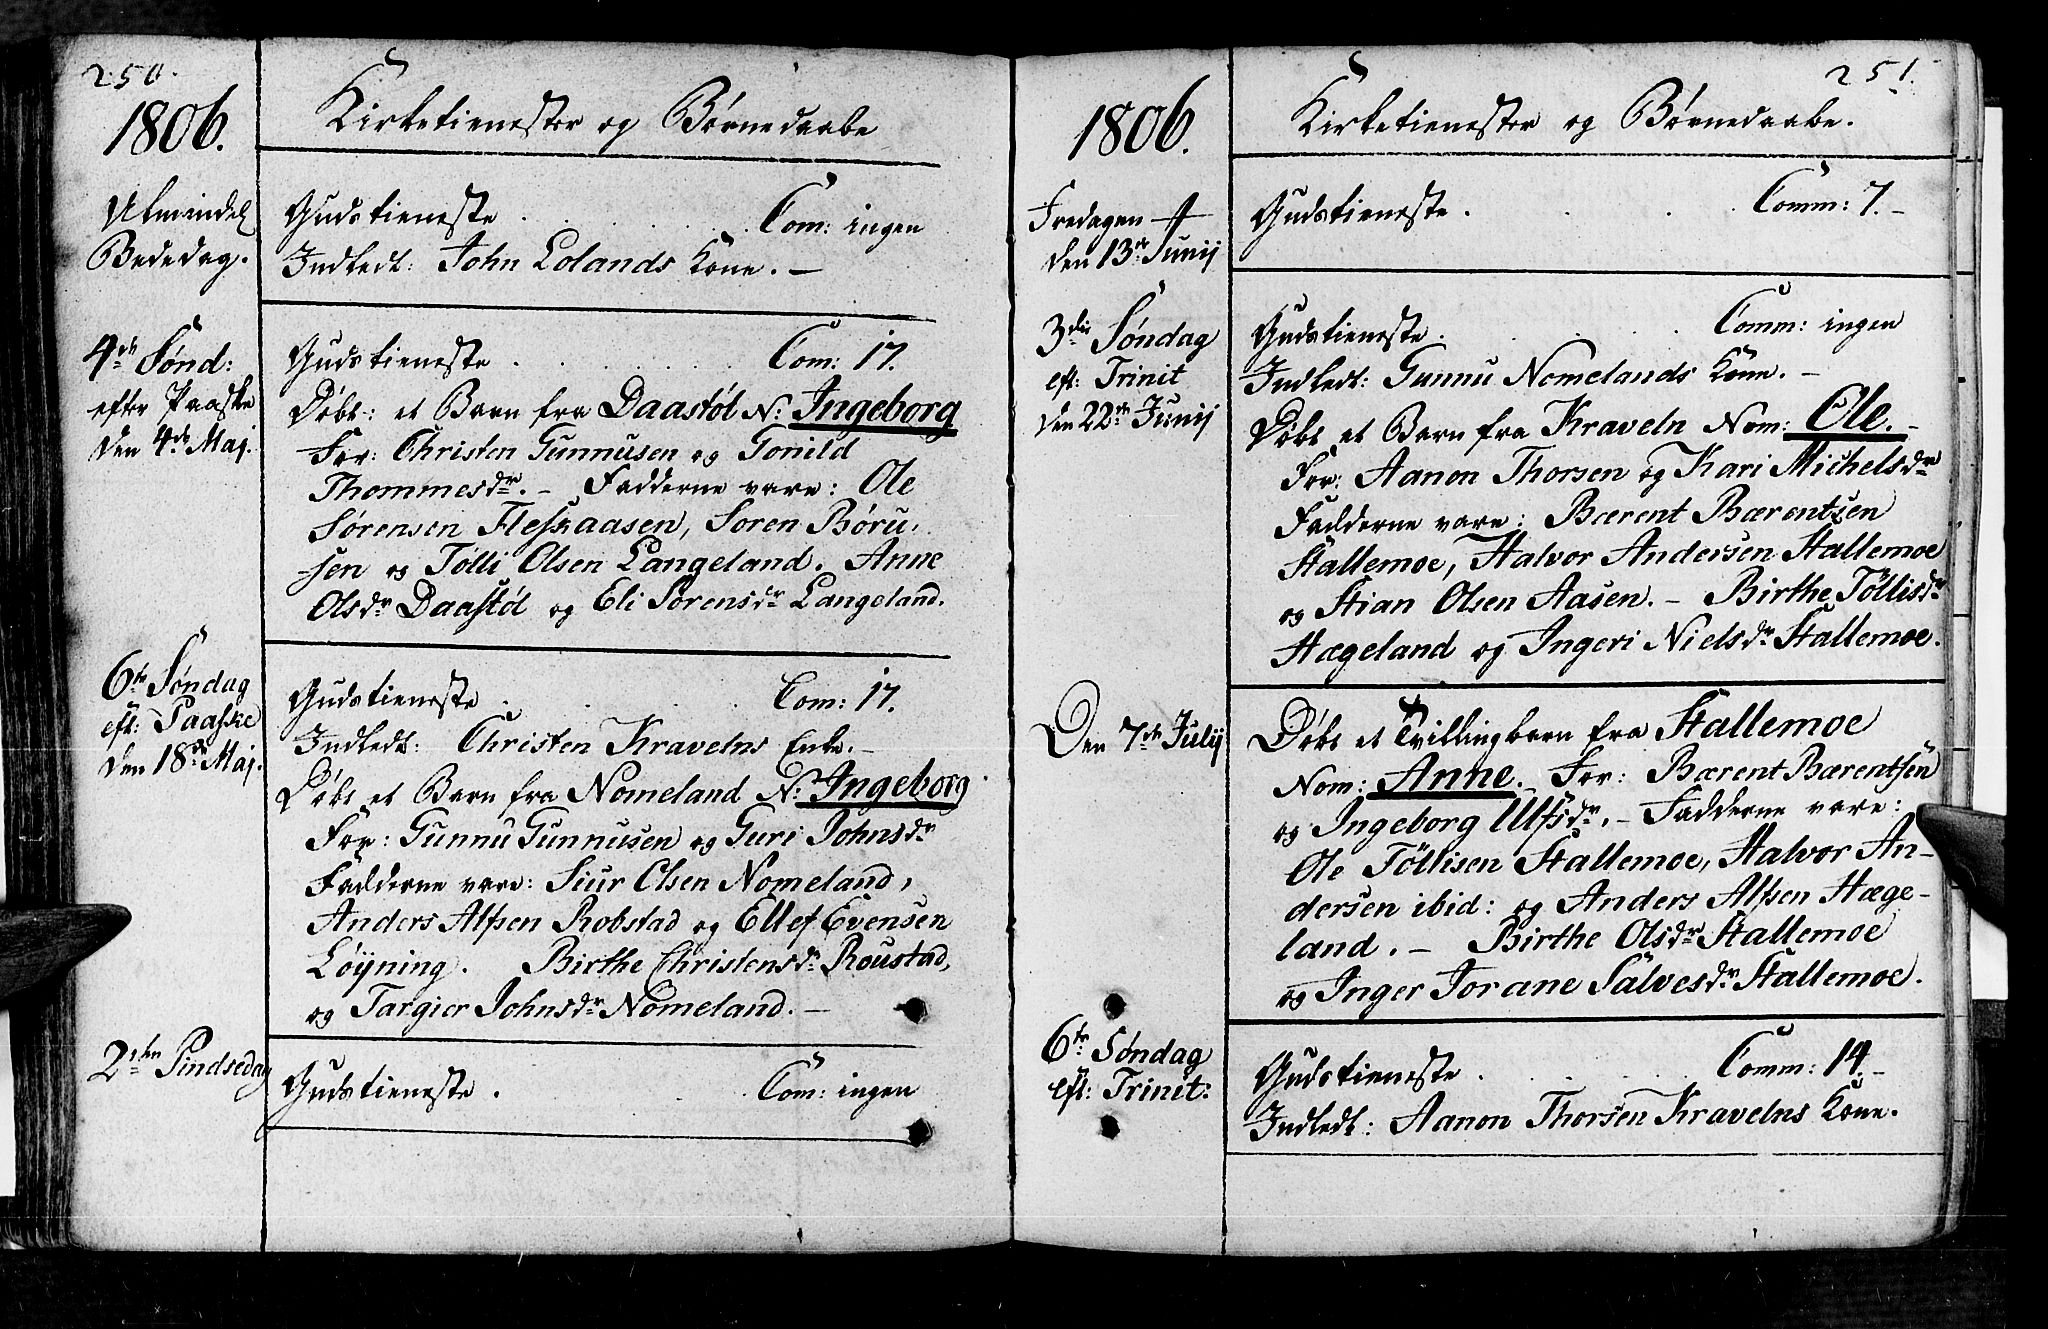 250.
1806.
Kirketienester og Børnedaabe
Almindel
Bededag.
Gudstieneste . . . . Com: ingen
Indledt: John Lolands Kone. –
4de Sønd:
efter Paaske
den 4de Maj.
Gudstieneste . . . . Com: 17.
Døbt: et Barn fra Daastøl N: Ingeborg
For: Christen Gunnusen og Gonild
Thommesdr. – Fadderne vare: Ole
Sørensen Fleskaasen, Søren Børu-
-sen og Tølli Olsen Langeland. Anne
Olsdr Daastøl og Eli Sørensdr Langeland.
6te Søndag
eft: Paaske
den 18de Maj.
Gudstieneste . . . . Com: 17.
Indledt: Christen Kravelns Enke. –
Døbt et Barn fra Nomeland N: Ingeborg
For: Gunnu Gunnusen og Guri Johnsdr
Fadderne vare: Siur Olsen Nomeland,
Anders Alfsen Robstad og Ellef Evensen
Løyning. Birthe Christensdr Roustad,
og Targier Johnsdr Nomeland. –
2den Pindsedag
Gudstieneste . . . . Com: ingen
251.
1806.
Kirketienester og Børnedaabe.
Fredagen
den 13de Junij
Gudstieneste . . . . Comm: 7. –
3die Søndag
eft: Trinit
den 22de Junij
Gudstieneste . . . . Comm: ingen
Indledt: Gunnu Nomelands Kone. –
Døbt et Barn fra Kraveln Nom: Ole. –
For: Aanon Thorsen og Kari Michelsdr
Fadderne vare: Bærent Bærentsen
Stallemoe, Halvor Andersen Stallemoe
og Stian Olsen Aasen. – Birthe Tøllisdr
Hægeland og Ingeri Nielsdr Stallemoe.
Den 7de Julij
Døbt et Tvillingbarn fra Stallemoe
Nom: Anne. For: Bærent Bærentsen
og Ingeborg Ulfsdr. – Fadderne vare:
Ole Tøllisen Stallemoe, Halvor An-
dersen ibid: og Anders Alfsen Hæge-
land. – Birthe Olsdr Stallemoe
og Inger Jorane Salvesdr Stallemoe.
6te Søndag
eft: Trinit:
Gudstieneste . . . . Comm: 14. –
Indledt: Aanon Thorsen Kravelns Kone.